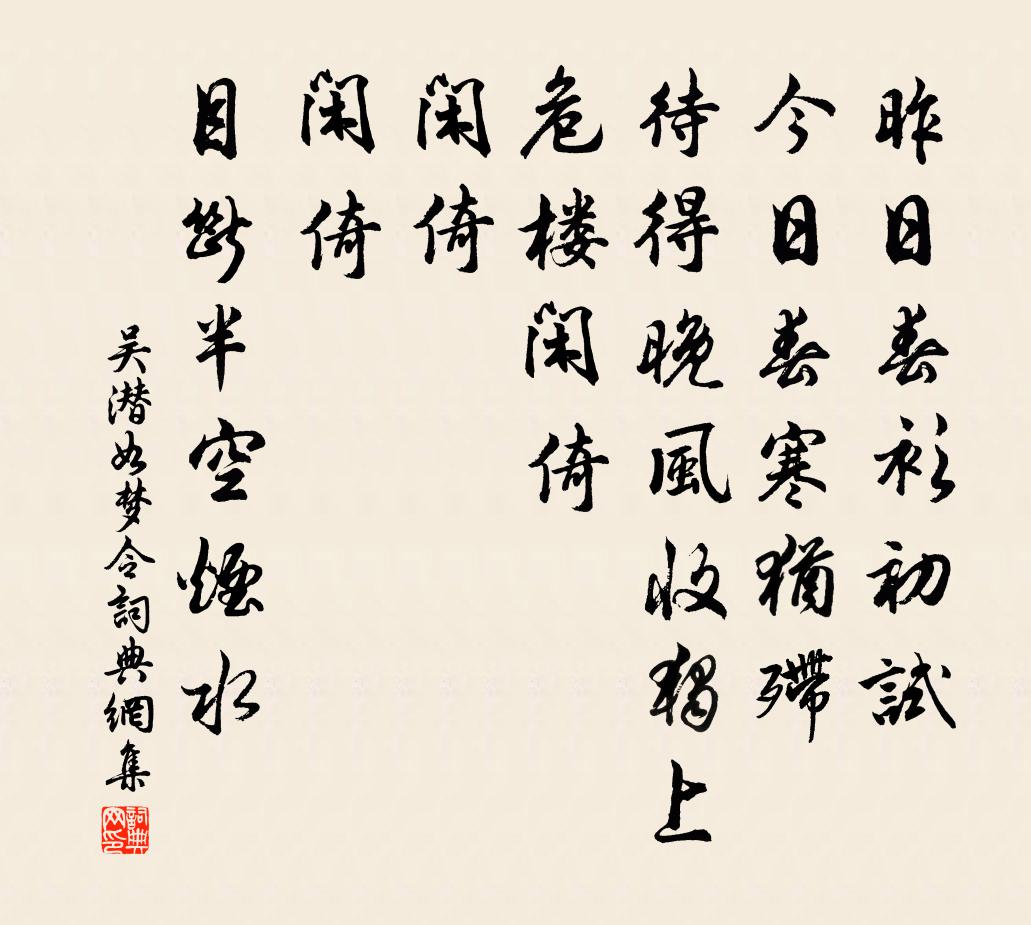 昨日春衫初試
今日春寒猶殢
待得晚風收獨上
危楼閑倚
閑倚
閑倚
目斷半空煙水
吴潜如梦令詞典網集
詞典网印